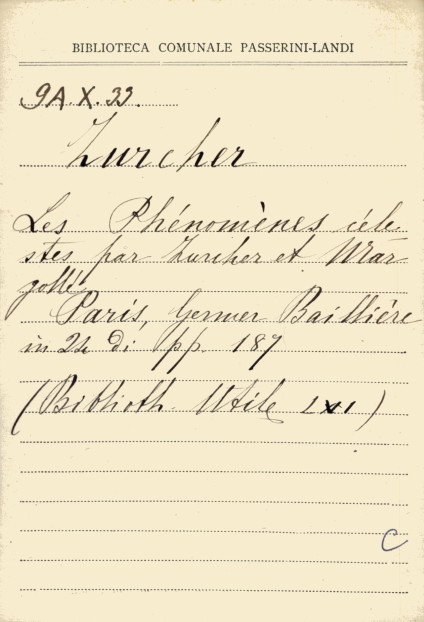 BIBLIOTECA COMUNALE PASSERINI-LANDI
9A.X.33.
Zurcher
Les Phénomènes céle-
stes par Zurcher et Mar-
gollé
Paris, Germer Baillière
in 24 di pp. 187
(Biblioth. Utile LXI)
C